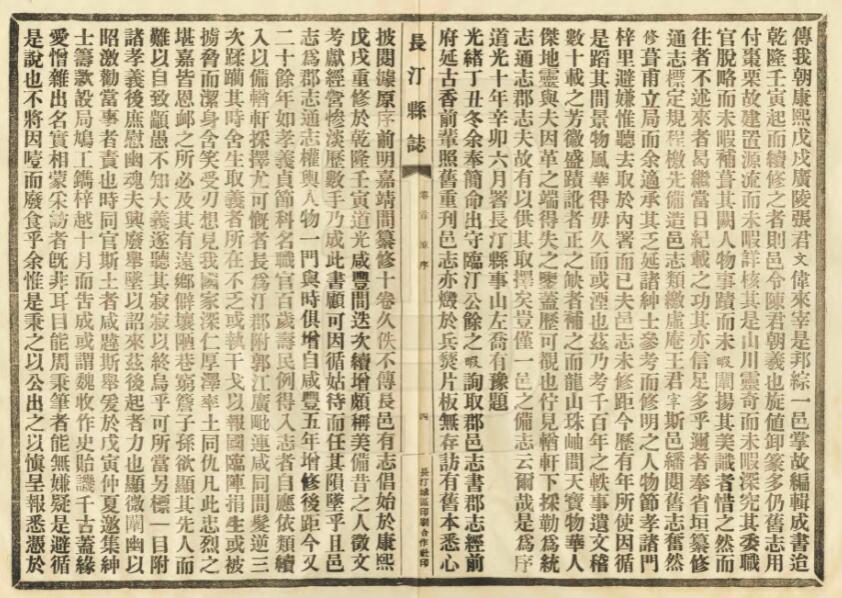 傳我朝康熙戊戌廣陵張君文偉來宰是邦綜一邑掌故編輯成書迨
乾隆壬寅起而續修之者則邑令陳君朝羲也旋值卸篆多仍舊志用
付棗栗故建置源流而未暇詳核其是山川靈奇而未暇深究其委職
官脫略而未暇補葺其闕人物事蹟而未暇闡揚其美識者惜之然而
往者不述來者曷繼當日紀載之功其亦信足多乎邇者奉省垣纂修
通志標定規程檄先備造邑志類繳虛庵王君宰斯邑繙閱舊志奮然
修葺甫立局而余適承其乏延諸紳士參考而修明之人物節孝諸門
梓里避嫌惟聽去取於內署而已夫邑志未修距今歷有年所使因循
是蹈其間景物風華得毋久而或湮也茲乃考千百年之軼事遺文稽
數十載之芳徽盛蹟訛者正之缺者補之而龍山珠岫間天寶物華人
傑地靈與夫因革之端得失之鑒蓋歷歷可觀也佇見輶軒下採勒爲統
志通志郡志夫故有以供其取擇矣豈僅一邑之備志云爾哉是爲序
道光十年辛卯六月署長汀縣事山左喬有豫題
光緒丁丑冬余奉簡命出守臨汀公餘之暇詢取郡邑志書郡志經前
府延古香前輩照舊重刊邑志亦燬於兵燹片板無存訪有舊本悉心
長汀縣誌
卷首 原序
四
長汀城區印刷合作社印
披閱據原序前明嘉靖間纂修十卷久佚不傳長邑有志倡始於康熙
戊戌重修於乾隆壬寅道光咸豐間迭次續增頗稱美備昔之人徵文
考獻經營慘淡歷數手乃成此書顧可因循姑待而任其隕墜乎且邑
志爲郡志通志權輿人物一門與時俱增自咸豐五年增修後距今又
二十餘年如孝義貞節科名職官百歲壽民例得入志者自應依類續
入以備輶軒採擇尤可慨者長爲汀郡附郭江廣毗連咸同間髮逆三
次蹂躪其時舍生取義者所在不乏或執干戈以報國臨陣捐生或被
擄脅而潔身含笑受刃想見我國家深仁厚澤率土同仇凡此忠烈之
堪嘉皆恩䘏之所必及其有遠鄉僻壤陋巷窮簷子孫欲顯其先人而
難以自致顓愚不知大義遂聽其寂寂以終烏乎可所當另標一目附
諸孝義後庶慰幽魂夫興廢舉墜以詔來茲後起者力也顯微闡幽以
昭激勸當事者責也時同官斯土者咸韙斯舉爰於戊寅仲夏邀集紳
士籌欵設局鳩工鐫梓越十月而告成或謂魏收作史貽譏千古蓋緣
愛憎雜出名實相蒙采訪者旣非耳目能周秉筆者能無嫌疑是避循
是說也不將因噎而廢食乎余惟是秉之以公出之以愼呈報悉憑於